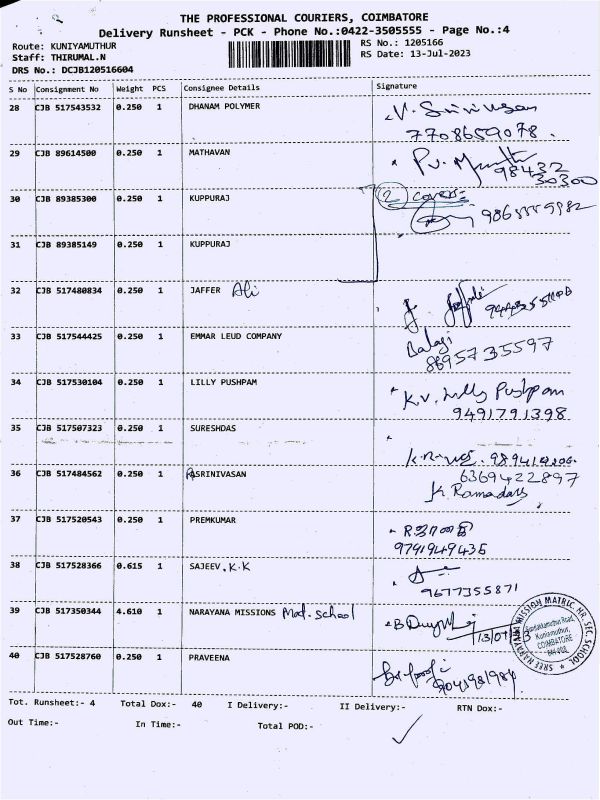 THE PROFESSIONAL COURIERS, COIMBATORE
Delivery Runsheet - PCK - Phone No.:0422-3505555 - Page No.:4
Route: KUNIYAMUTHUR
RS No.: 1205166
Staff: THIRUMAL.N
RS Date: 13-Jul-2023
DRS No.: DCJB120516604
S No Consignment No Weight PCS Consignee Details Signature
28 CJB 517543532 0.250 1 DHANAM POLYMER V. Srinivasan
7708659078.
29 CJB 89614500 0.250 1 MATHAVAN
98432
30300
30 CJB 89385300 0.250 1 KUPPURAJ 2 covers
31 CJB 89385149 0.250 1 KUPPURAJ
32 CJB 517480834 0.250 1 JAFFER Ali
33 CJB 517544425 0.250 1 EMMAR LEUD COMPANY Balaji
8695735597
34 CJB 517530104 0.250 1 LILLY PUSHPAM K.V. Lilly Pushpam
9491791398
35 CJB 517507323 0.250 1 SURESHDAS
36 CJB 517484562 0.250 1 SRINIVASAN 6369422897
K Ramadass
37 CJB 517520543 0.250 1 PREMKUMAR
9791949435
38 CJB 517528366 0.615 1 SAJEEV.K.K
9677355871
39 CJB 517350344 4.610 1 NARAYANA MISSIONS Mat-school
SREE NARAYANA MISSION MATRIC. HR. SEC. SCHOOL
Kuniamuthur,
COIMBATORE
40 CJB 517528760 0.250 1 PRAVEENA
Tot. Runsheet:- 4 Total Dox:- 40 I Delivery:- II Delivery:- RTN Dox:-
Out Time:- In Time:- Total POD:-